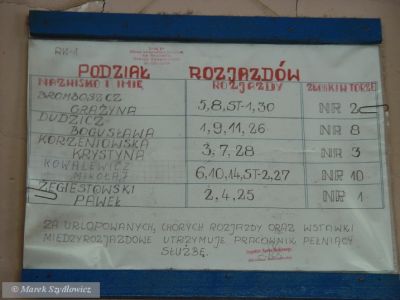 RK-1
PODZIAŁ ROZJAZDÓW
NAZWISKO I IMIĘ ROZJAZDY
BROMBOSZCZ
GRAŻYNA 5,8,ST-1,30 NR 2
DUDZICZ
BOGUSŁAWA 1,9,11,26 NR 8
KORZENIOWSKA
KRYSTYNA 3,7,28 NR 3
KOWALEWICZ
MIKOŁAJ 6,10,14,ST-2,27 NR 10
ŻEGIESTOWSKI
PAWEŁ 2,4,25 NR 1
ZA URLOPOWANYCH, CHORYCH ROZJAZDY ORAZ WSTAWKI
MIĘDZYROZJAZDOWE UTRZYMUJE PRACOWNIK PEŁNIĄCY
SŁUŻBĘ.
© Marek Szydłowicz